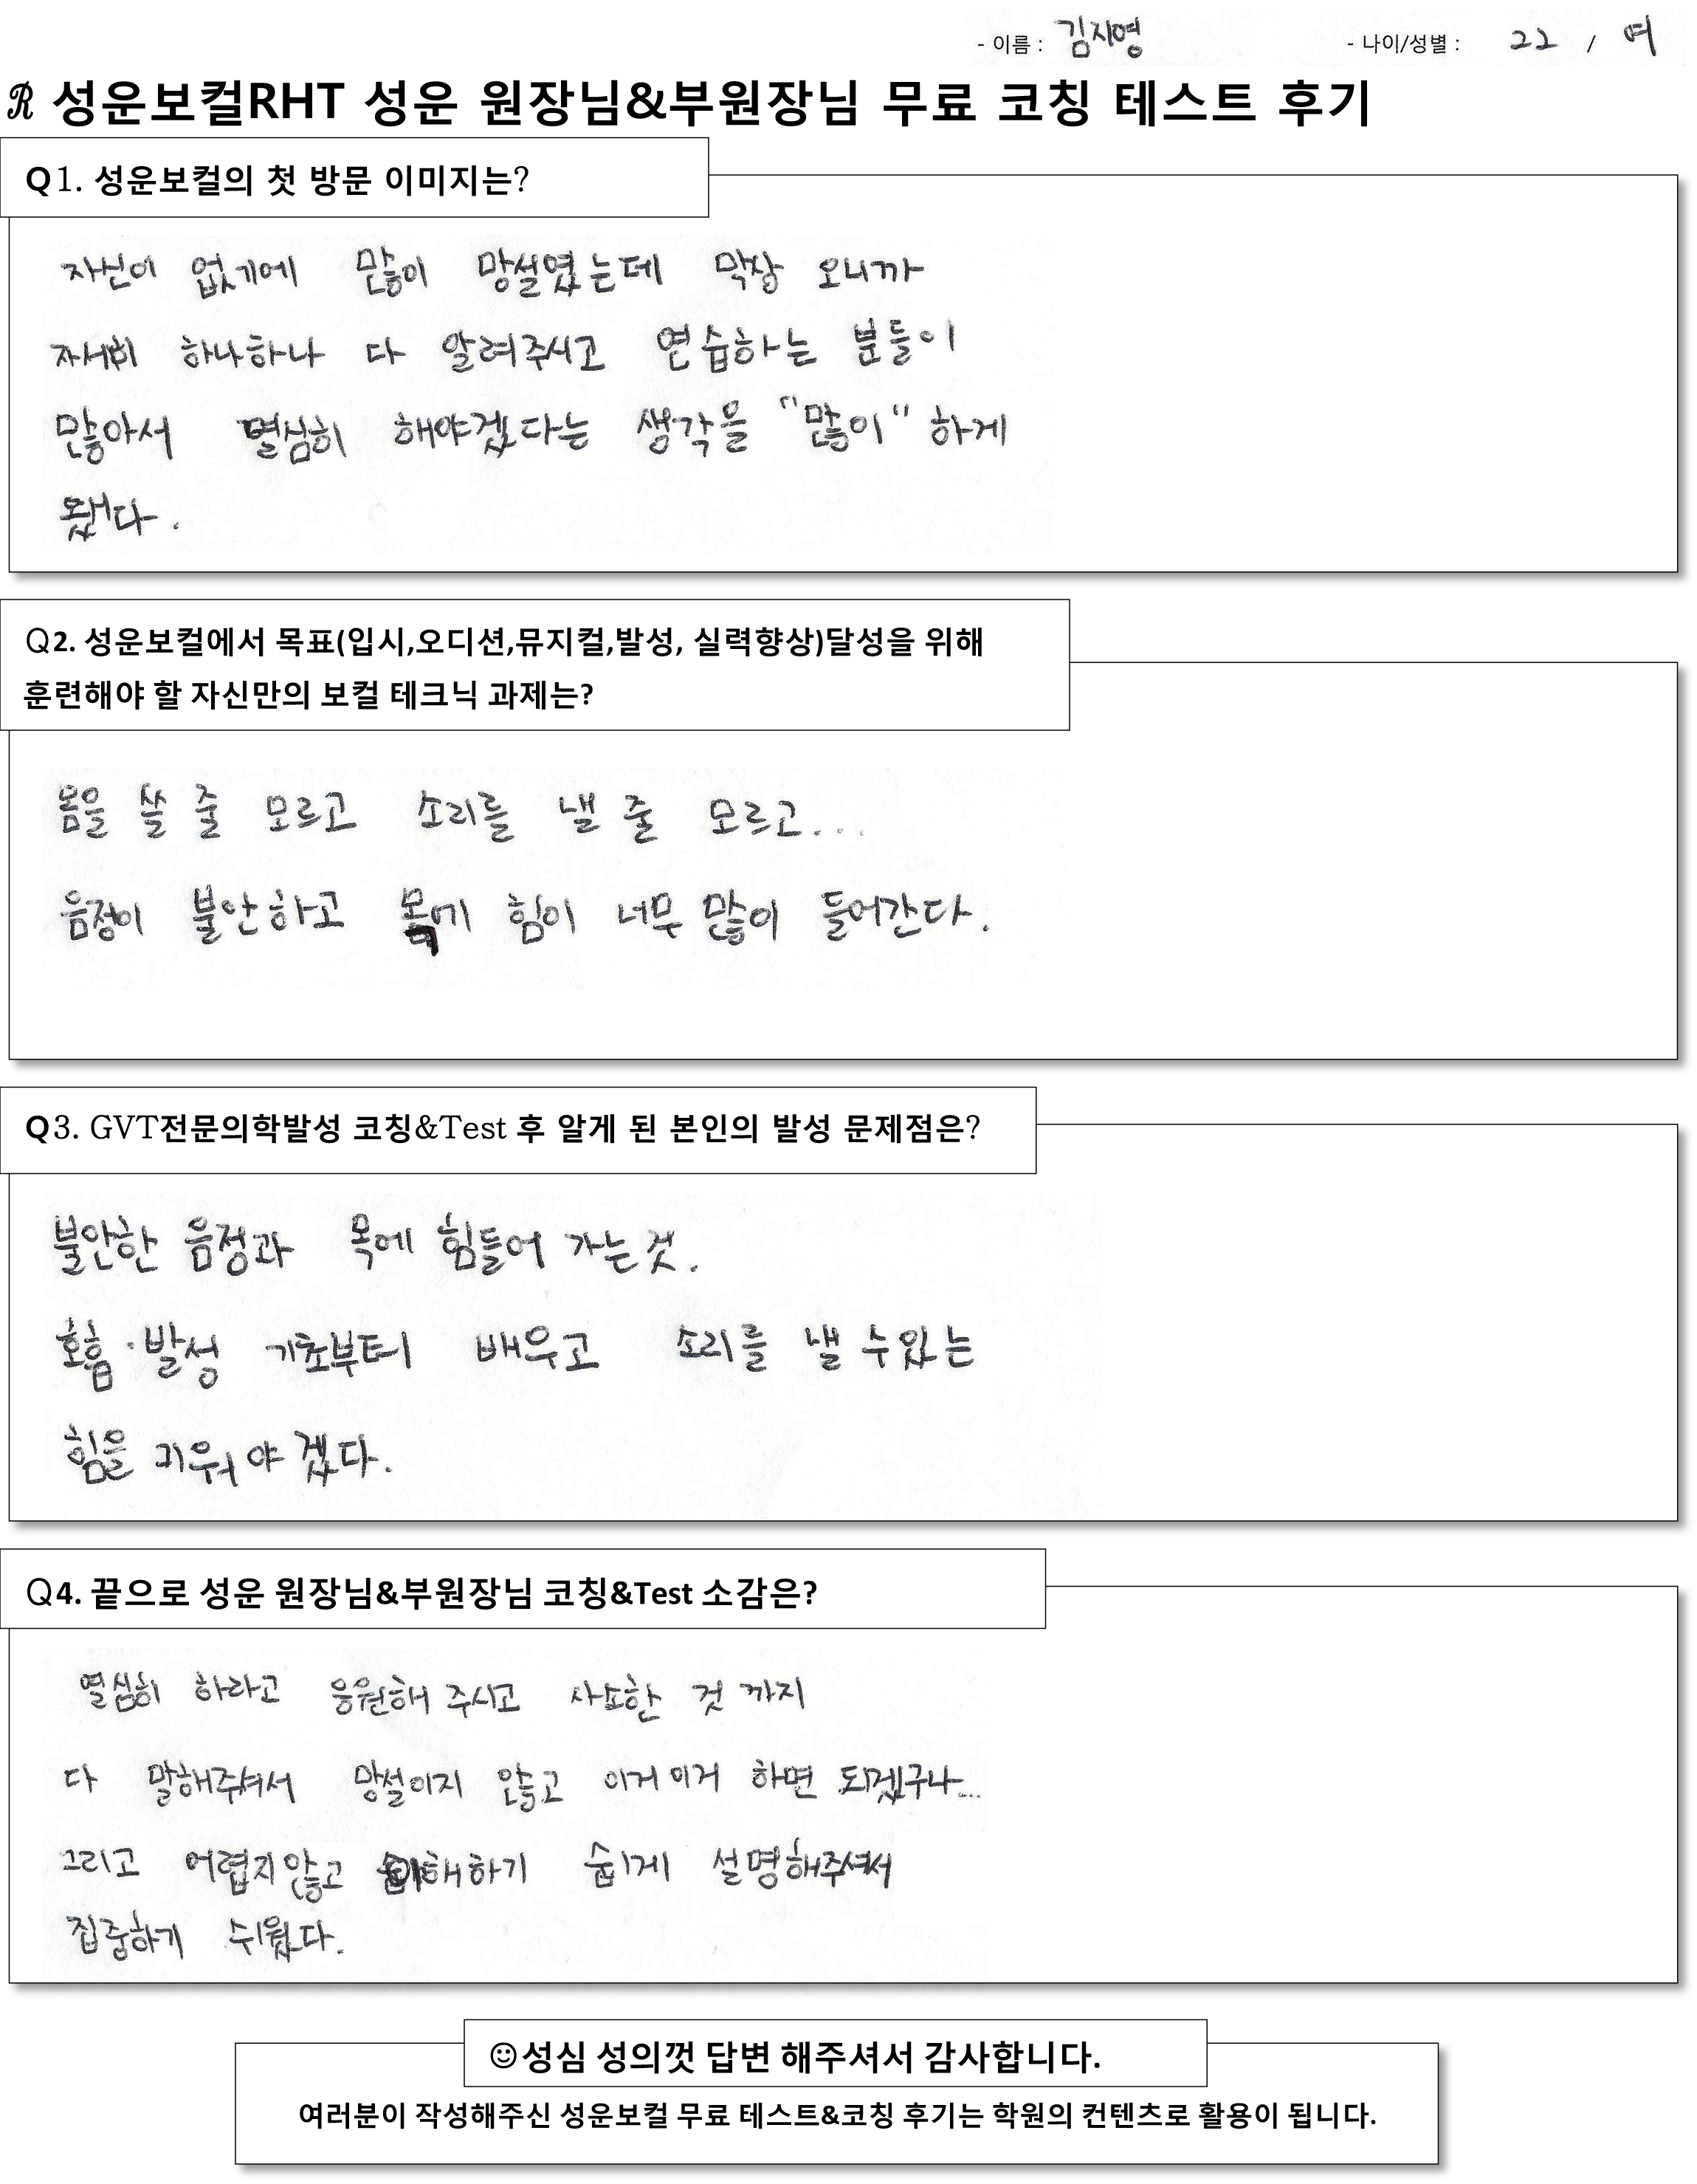 - 이름 : 김지영 - 나이/성별 : 22 / 여
R 성운보컬RHT 성운 원장님&부원장님 무료 코칭 테스트 후기
Q1. 성운보컬의 첫 방문 이미지는?
자신이 없기에 많이 망설였는데 막상 오니까
자세히 하나하나 다 알려주시고 연습하는 분들이
많아서 열심히 해야겠다는 생각을 "많이" 하게
됐다.
Q2. 성운보컬에서 목표(입시,오디션,뮤지컬,발성, 실력향상)달성을 위해
훈련해야 할 자신만의 보컬 테크닉 과제는?
몸을 쓸 줄 모르고 소리를 낼 줄 모르고...
음정이 불안하고 목에 힘이 너무 많이 들어간다.
Q3. GVT전문의학발성 코칭&Test 후 알게 된 본인의 발성 문제점은?
불안한 음정과 목에 힘들어 가는 것.
호흡·발성 기초부터 배우고 소리를 낼 수 있는
힘을 키워야겠다.
Q4. 끝으로 성운 원장님&부원장님 코칭&Test 소감은?
열심히 하라고 응원해 주시고 사소한 것 까지
다 말해주셔서 망설이지 않고 이거 이거 하면 되겠구나...
그리고 어렵지 않고 이해하기 쉽게 설명해주셔서
집중하기 쉬웠다.
☺성심 성의껏 답변 해주셔서 감사합니다.
여러분이 작성해주신 성운보컬 무료 테스트&코칭 후기는 학원의 컨텐츠로 활용이 됩니다.